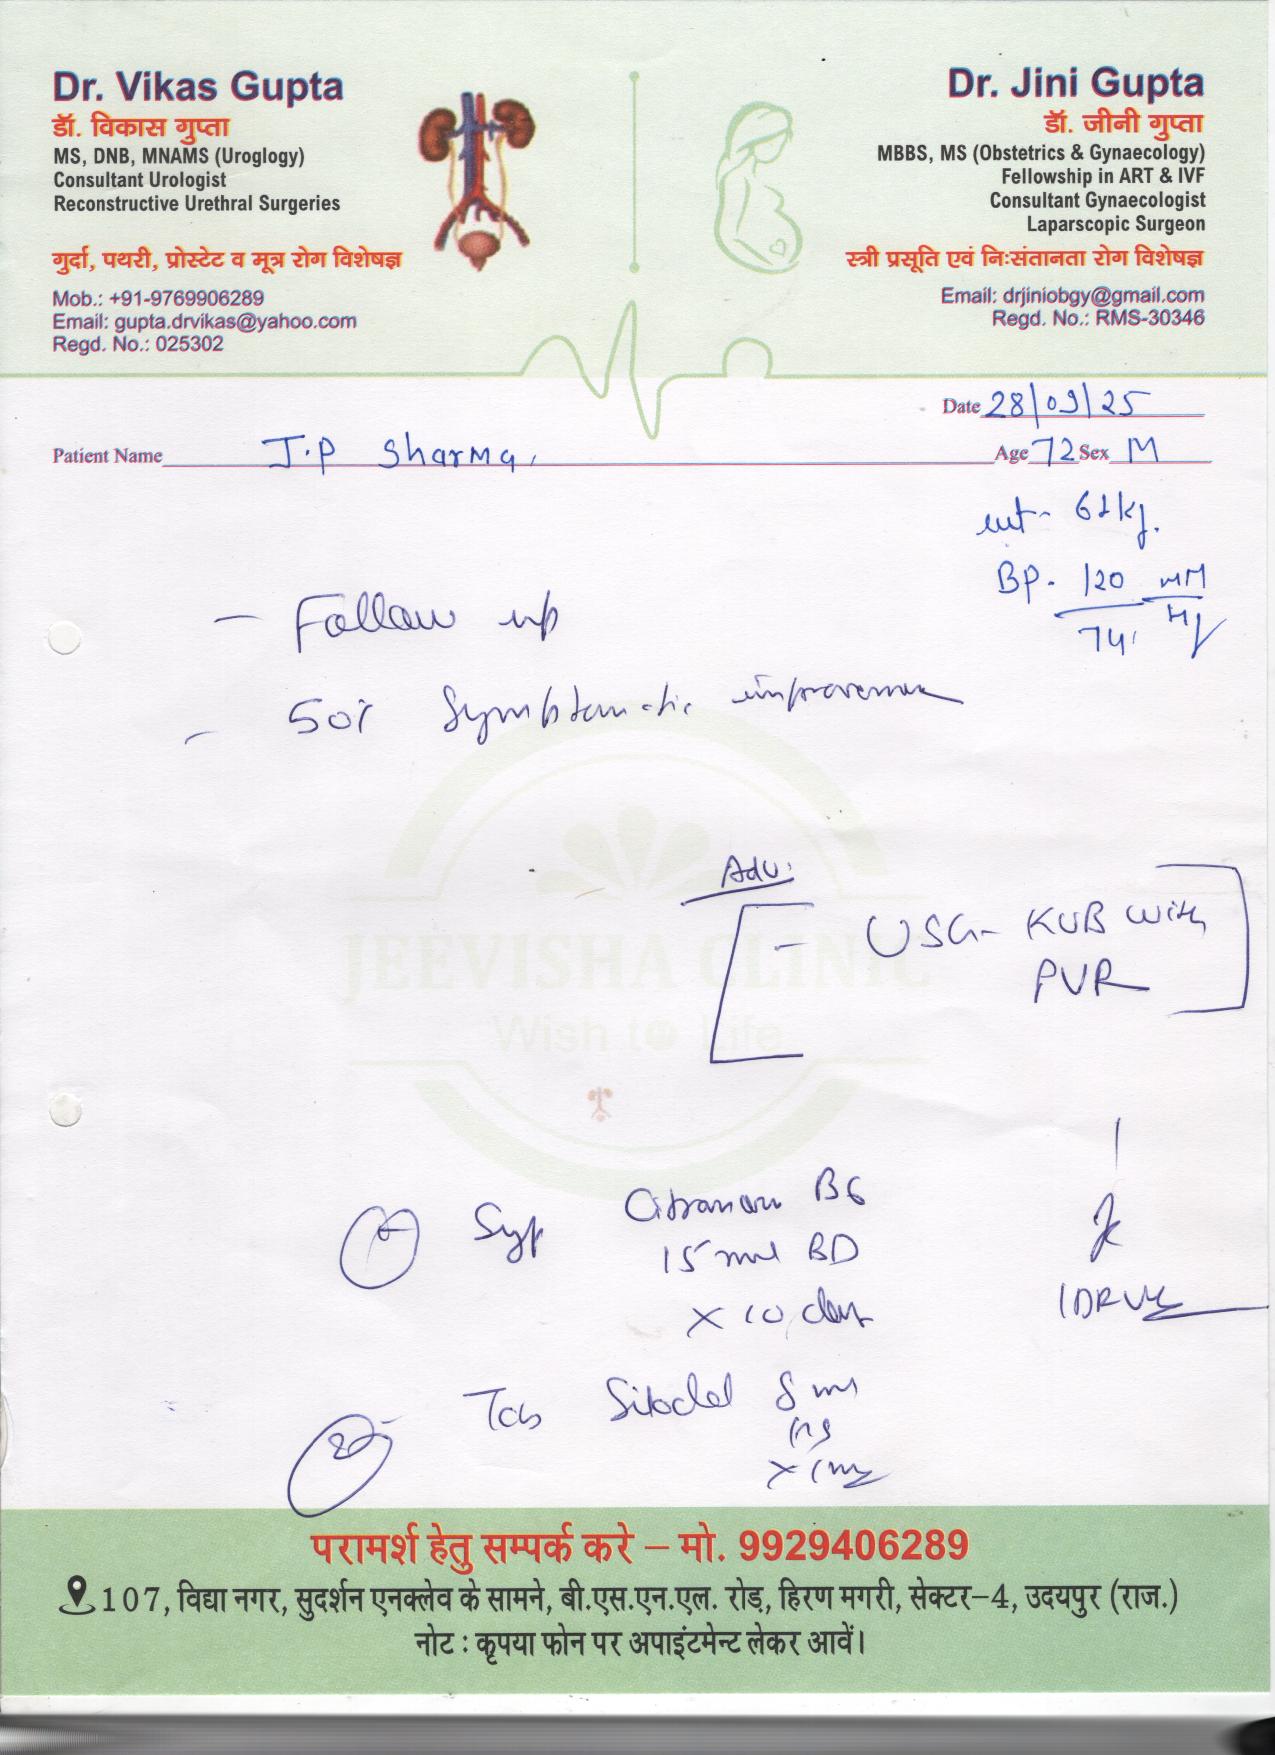 Dr. Vikas Gupta
डॉ. विकास गुप्ता
MS, DNB, MNAMS (Uroglogy)
Consultant Urologist
Reconstructive Urethral Surgeries
गुर्दा, पथरी, प्रोस्टेट व मूत्र रोग विशेषज्ञ
Mob.: +91-9769906289
Email: gupta.drvikas@yahoo.com
Regd. No.: 025302
Dr. Jini Gupta
डॉ. जीनी गुप्ता
MBBS, MS (Obstetrics & Gynaecology)
Fellowship in ART & IVF
Consultant Gynaecologist
Laparscopic Surgeon
स्त्री प्रसूति एवं निःसंतानता रोग विशेषज्ञ
Email: drjiniobgy@gmail.com
Regd. No.: RMS-30346
Date 28/09/25
Patient Name J.P Sharma Age 72 Sex M
wt - 61kg.
BP. 120 MM
74 Hg
- Follow up
- 50% Symptomatic improvement
Adv.
- USG- KUB with
PVR
JEEVISHA CLINIC
Wish to Life
Syp B6
15 ml BD
x 10 days
Tab 8 mg
परामर्श हेतु सम्पर्क करे – मो. 9929406289
107, विद्या नगर, सुदर्शन एनक्लेव के सामने, बी.एस.एन.एल. रोड़, हिरण मगरी, सेक्टर-4, उदयपुर (राज.)
नोट : कृपया फोन पर अपाइंटमेन्ट लेकर आवें।